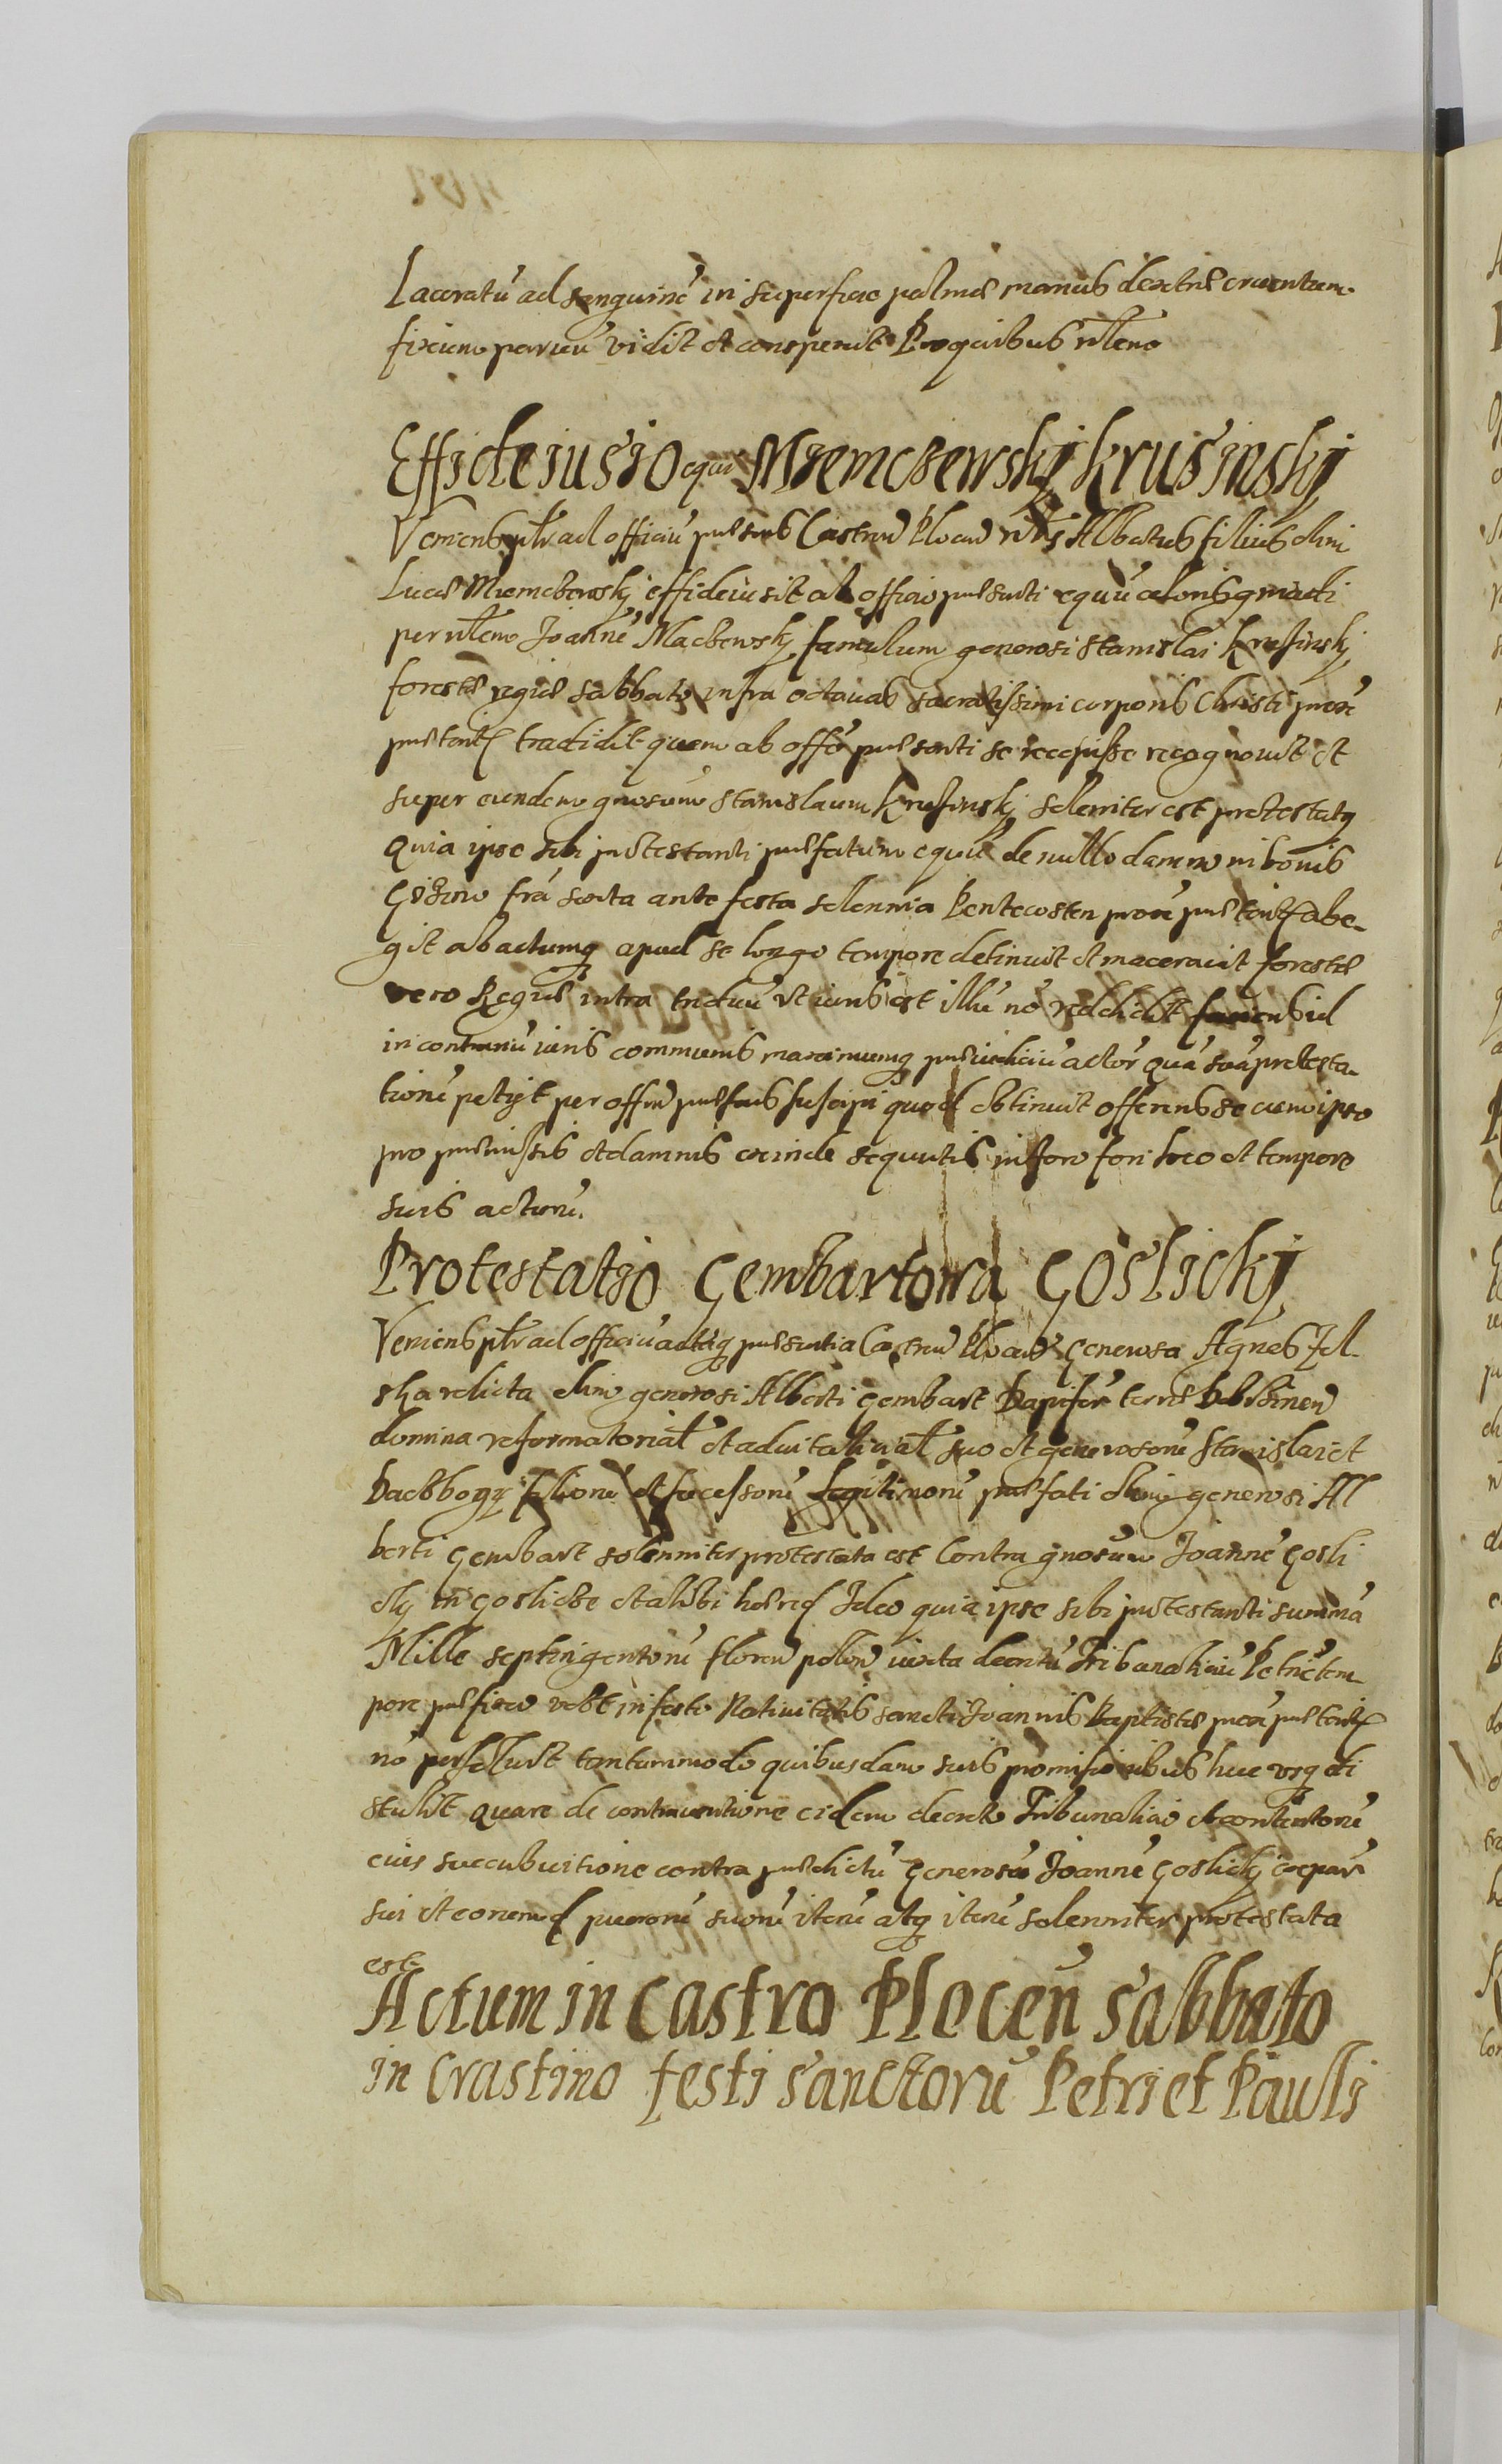 Laceratū ad sanguinē in superficie palmae manus dextrae cruentum
fixum parvū vidit et conspexit Pro quibus
Effideiussio equi Miemczewskÿ Krusinskÿ
Veniens ad officiū praesens Castrn̄ Plocen̄ Albertus filius olim
Lucae Miemczewskÿ effideiusit ab officio praesenti equū
per Joannē Maczewskÿ famulum generosi Stanislai Krusinskÿ
forestae regiae sabbato infra octavas sacratissimi corporis Christi prox̄
praeterit tradidit quem ab offō praesenti se recepisse recognovit et
super eundem gnosum Stanislaum Krusinskÿ solenniter est protestatꝗ
Quia ipse sibi protestanti praefatum equū de nullo damno in bonis
frā sexta ante festa solennia Pentecosten prox̄ praeterit abe-
git abactumꝗ apud se longo tempore detinuit et maceravit forestae
vero Regiae intra triduū ut iuris est illū nō reddidit faciens id
in contrariū iuris communis maximumꝗ praeiudiciū actor̄ quā suā protesta-
tionē petÿt per offm̄ praesens suscipi quod obtinuit offerens se cum ipso
pro praemissis et damnis exinde sequutis in foro fori loco et tempore
suis acturū.
Protestatio Gembartowa Goslickÿ
Veniens ad officiū actaꝗ praesentia Castrn̄ Plocen̄ Generosa Agnes
ska relicta olim generosi Alberti Gembart Dapifer terrae Dobrzinen̄
domina reformatorial̄ et advitalicial̄ suo et generosorū Stanislai et
Daczbogÿ filiorū et successorū legitimorū praefati olim generosi Al
berti Gembart solenniter protestata est Contra gnosum Joannē Gosli
ckÿ in Goslicze et alibi haered Ideo quia ipse sibi protestanti summā
Mille septingentorū floren̄ polon̄ iuxta decretū Tribunaliciū Petricē tem-
pore praefixo in festo Nativitatis sancti Joannis Baptistae prox̄ praeterit
nō persolvit tantummodo quibusdam suis promissionibus huc usꝗ di
stulit Quare de contraventione eidem decreto Tribunalicio et contentorū
eius succubuitione contra praedictū Generosū Joannē Goslickÿ
sui et eorumd puerorū suorū iterū atꝗ iterū solenniter protestata
est
Actum in Castro Plocen̄ Sabbato
in Crastino festi sanctorū Petri et Pauli